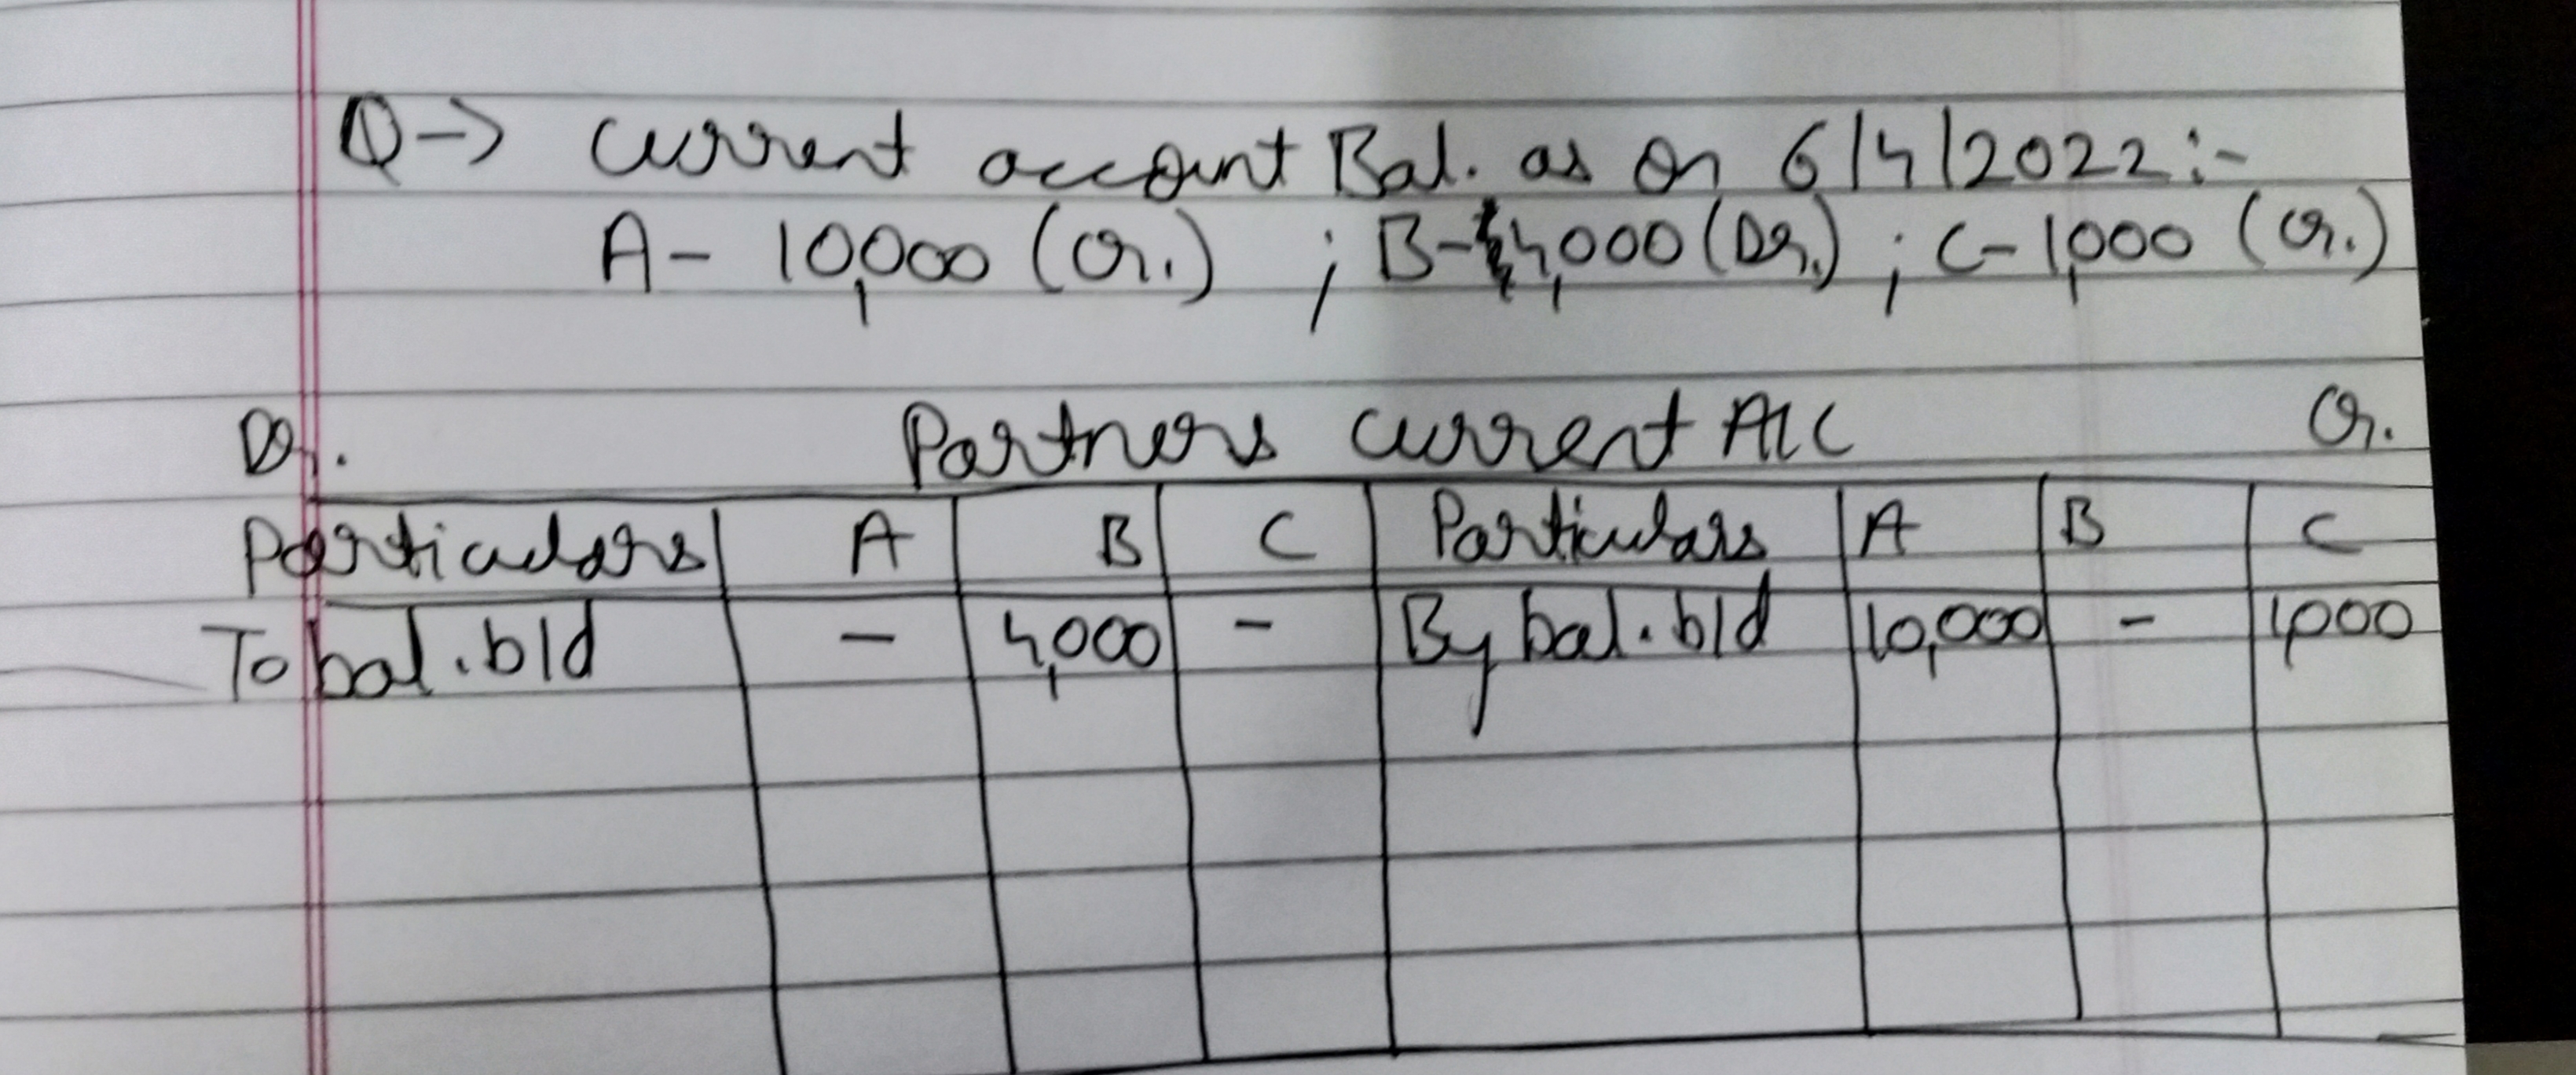 Q-> Current account Bal. as on 6/4/2022:-
A- 10,000 (Cr.) ; B-4,000 (Dr.) ; C-1,000 (Cr.)
Dr. Partners Current A/C Cr.
Particulars A B C Particulars A B C
To bal. b/d - 4,000 - By bal. b/d 10,000 - 1,000